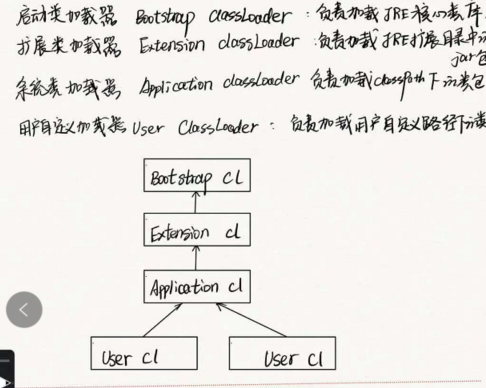 启动类加载器 Bootstrap ClassLoader：负责加载JRE核心类库
扩展类加载器 Extension classLoader：负责加载JRE扩展目录中
jar包
系统类加载器 Application classloader 负责加载classpath下的类包
用户自定义加载器User ClassLoader：负责加载用户自定义路径下的类
Bootstrap cl
Extension cl
Application cl
User cl
User cl